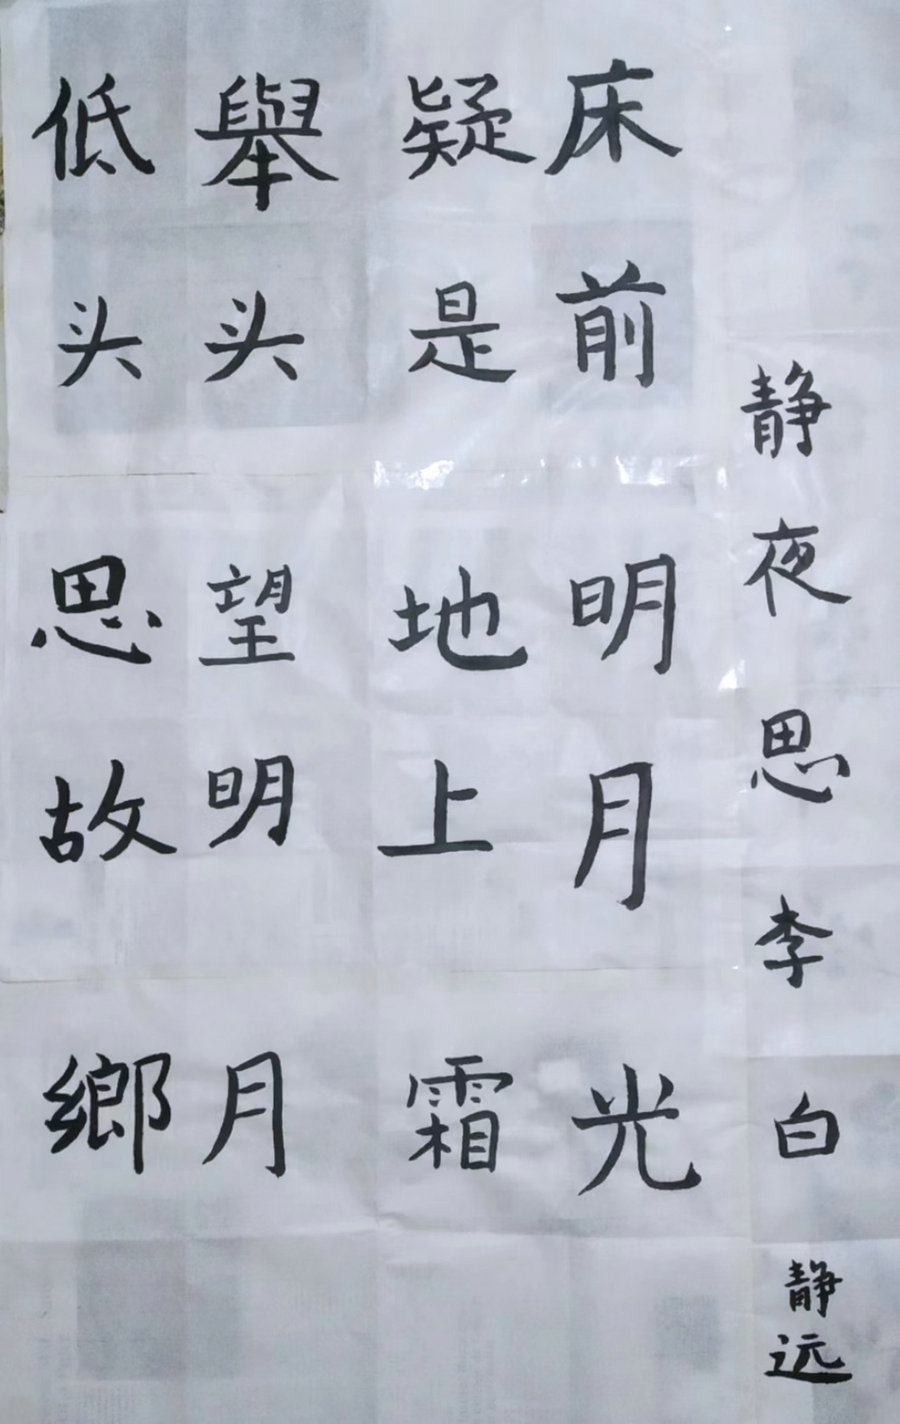 静夜思李白
静远
床前明月光
疑是地上霜
舉头望明月
低头思故鄉